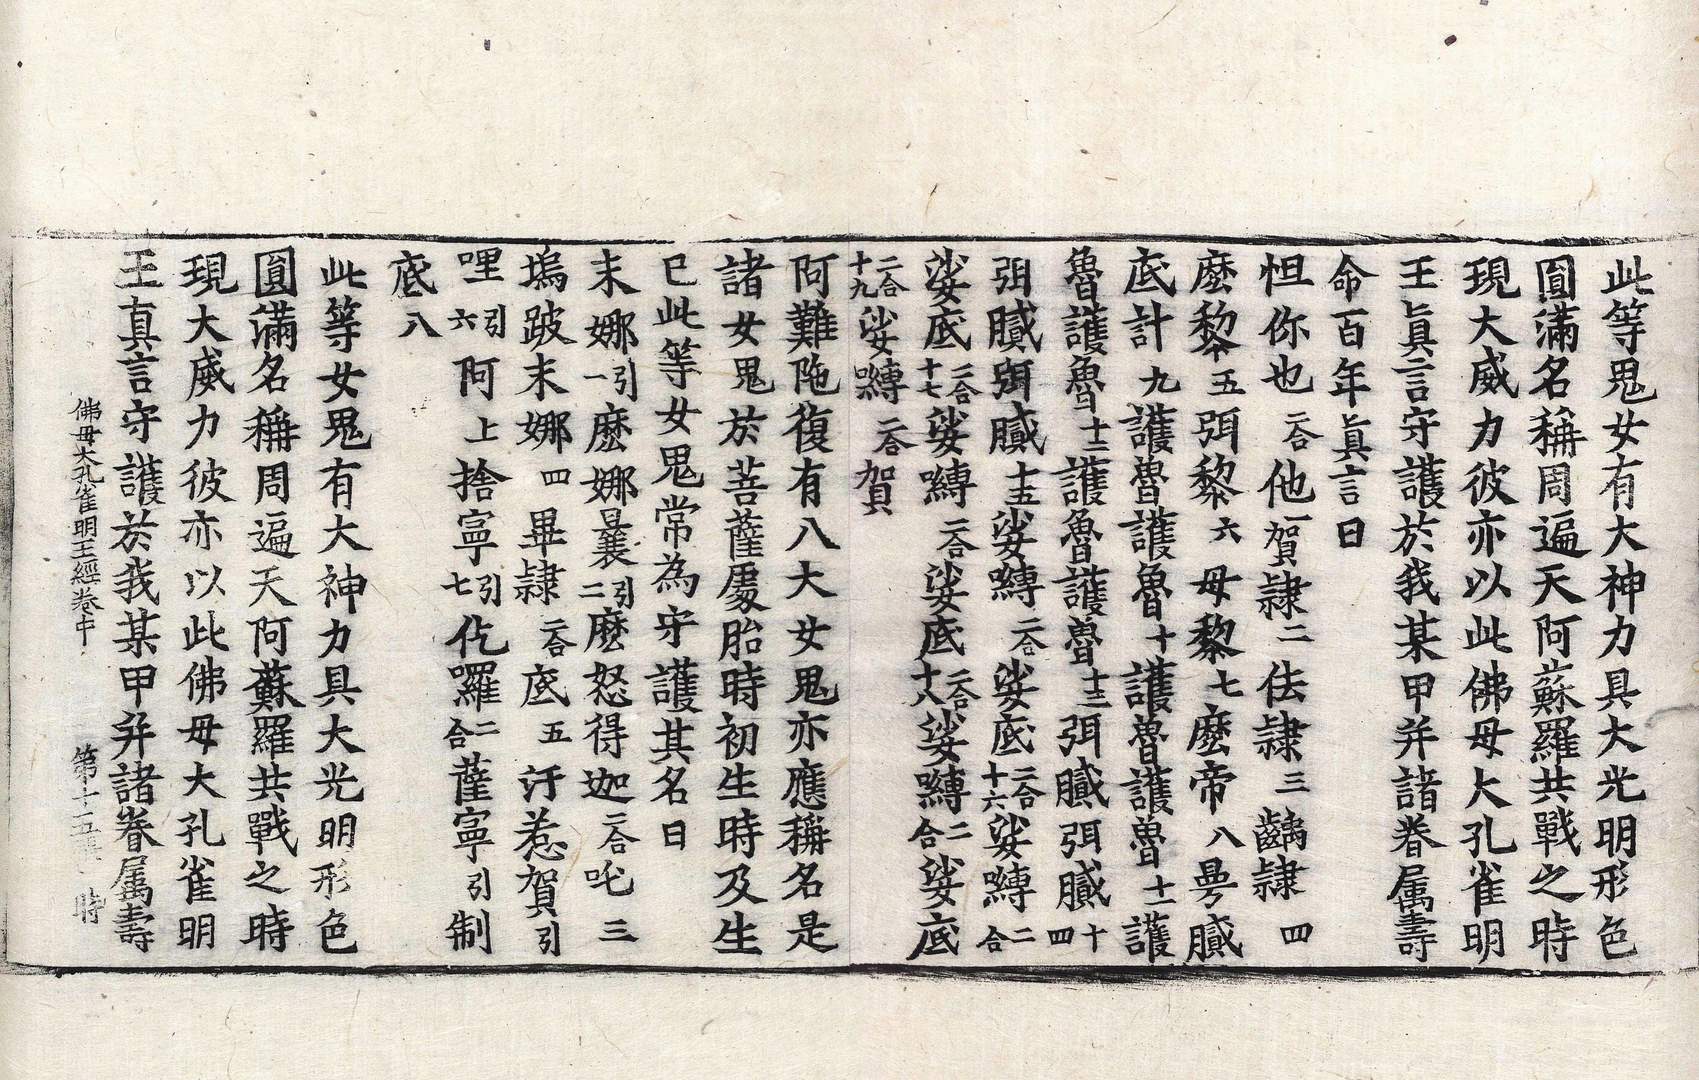 此等鬼女有大神力具大光明形色
圓滿名稱周遍天阿蘇羅共戰之時
現大威力彼亦以此佛母大孔雀明
王眞言守護於我某甲并諸眷属壽
命百年眞言曰
怛你也二合他一賀隸二佉隸三齲隸四
麼黎五弭黎六母黎七麼帝八曼膩
底計九護魯護魯十護魯護魯十一護
魯護魯十二護魯護魯十三弭膩弭膩十四
弭膩弭膩十五娑嚩二合娑底二合十六娑嚩二合
娑底二合十七娑嚩二合娑底二合十八娑嚩二合娑底
二合十九娑嚩二合賀
阿難陁復有八大女鬼亦應稱名是
諸女鬼於菩薩處胎時初生時及生
已此等女鬼常為守護其名曰
末娜引一麼娜曩引二麼怒得迦二合吒三
塢跛末娜四畢隸二合底五汙惹賀引
哩引六阿上捨寧引七仡囉二合薩寧引制
底八
此等女鬼有大神力具大光明形色
圓滿名稱周遍天阿蘇羅共戰之時
現大威力彼亦以此佛母大孔雀明
王真言守護於我某甲并諸眷属壽
佛母大孔雀明王經卷中 第十五張 時